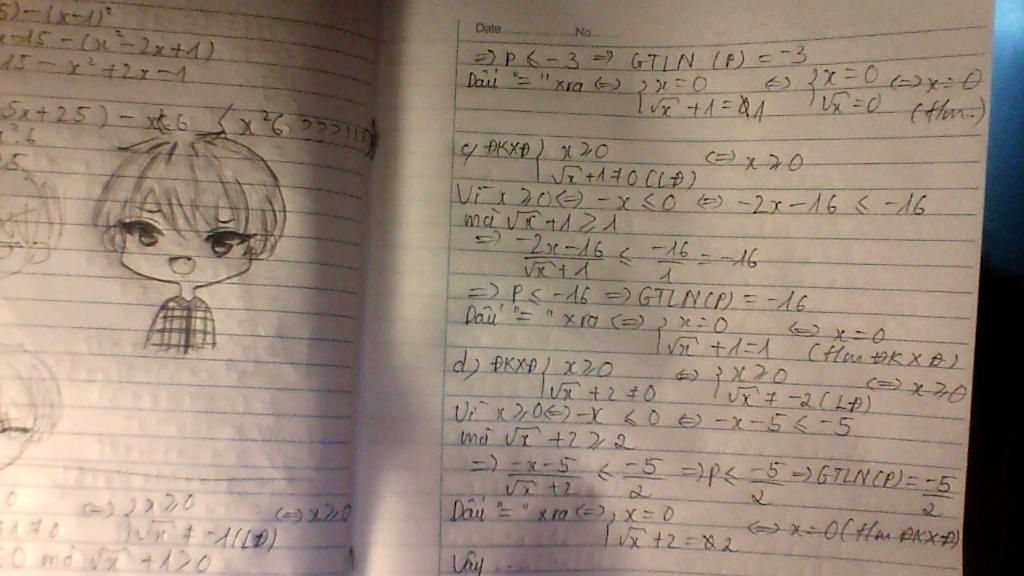 5) - (x-1)²
x-15 - (x² - 2x+1)
15 - x² + 2x - 1
5x+25) - x≤6 { x²6 >>>111)
x²6
5.
0 <=> { x ≥ 0 <=> x ≥ 0
+1 ≠ 0 √x ≠ -1 (LĐ)
≤0 mà √x + 1 > 0
Date No
=> P ≤ -3 => GTLN (P) = -3
Dấu "=" xra <=> { x = 0 <=> { x = 0 <=> x = 0
√x + 1 = 1 √x = 0 (thm.)
c) ĐKXĐ { x ≥ 0 <=> x ≥ 0
√x + 1 ≠ 0 (LĐ)
Vì x ≥ 0 <=> -x ≤ 0 <=> -2x - 16 ≤ -16
mà √x + 1 ≥ 1
=> (-2x - 16)/(√x + 1) ≤ -16/1 = -16
=> P ≤ -16 => GTLN (P) = -16
Dấu "=" xra <=> { x = 0 <=> x = 0
√x + 1 = 1 (thm ĐKXĐ)
d) ĐKXĐ { x ≥ 0 <=> { x ≥ 0 <=> x ≥ 0
√x + 2 ≠ 0 √x ≠ -2 (LĐ)
Vì x ≥ 0 <=> -x ≤ 0 <=> -x - 5 ≤ -5
mà √x + 2 ≥ 2
=> (-x - 5)/(√x + 2) ≤ -5/2 => P ≤ -5/2 => GTLN (P) = -5/2
Dấu "=" xra <=> { x = 0 <=> x = 0 (thm ĐKXĐ)
√x + 2 = 2
Vậy ......